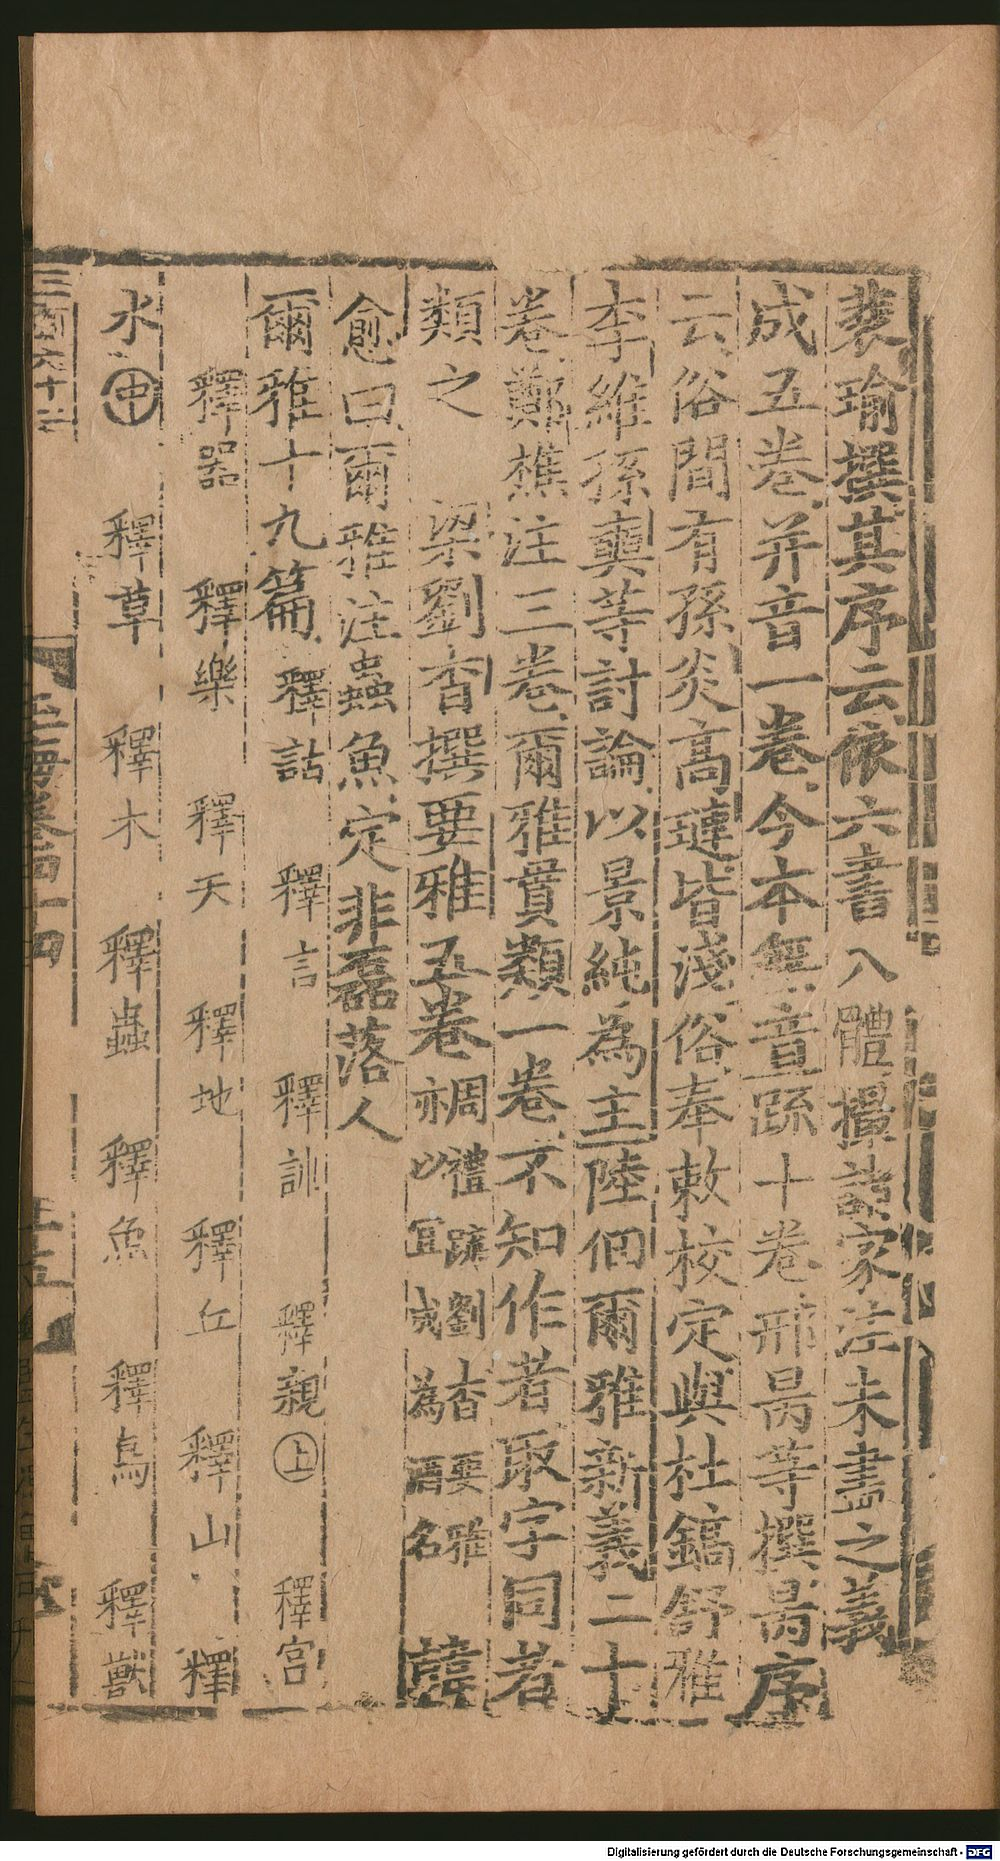 裴瑜撰其序云依六書八體撮諸家注未盡之義
成五卷并音一卷今本無音疏十卷邢昺等撰昺序
云俗間有孫炎高璉皆淺俗奉敕校定與杜鎬舒雅
李維孫奭等討論以景純為主陸佃爾雅新義二十
卷鄭樵注三卷爾雅貫類一卷不知作者取字同者
類之 梁劉杳撰要雅五卷周禮疏劉杳要雅亦以宜成為酒名 韓
愈曰爾雅注蟲魚定非磊落人
爾雅十九篇釋詁 釋言 釋訓 釋親上 釋宮
釋器 釋樂 釋天 釋地 釋丘 釋山 釋
水中 釋草 釋木 釋蟲 釋魚 釋鳥 釋獸
玉海卷四十四
Digitalisierung gefördert durch die Deutsche Forschungsgemeinschaft - DFG